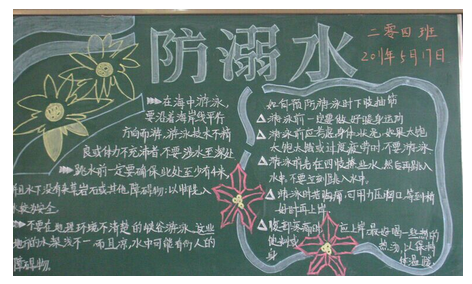 防溺水
二零四班
2019年5月17日
在海中游泳，
要沿着海岸线平行
方向而游，游泳技术不精
良或体力不充沛者不要涉水至深处
跳水前一定要确保此处至少有3米
且水下没有杂草岩石或其他障碍物。以脚先入
水较为安全
不要在地理环境不清楚的峡谷游泳。这些
地方的水深浅不一而且凉，水中可能有伤人的
障碍物。
如何预防游泳时下肢抽筋
游泳前一定要做好暖身运动
游泳前应考虑身体状况，如果太饱
太饿或过度疲劳时不要游泳
游泳前先在四肢撩些水，然后再跳入
水中，不要立刻跳入水中。
游泳时若胸痛，可用力压胸口，等到稍
好时再上岸
腹部疼痛时，应上岸，最好喝一些热的
热汤，以保持
身体温暖